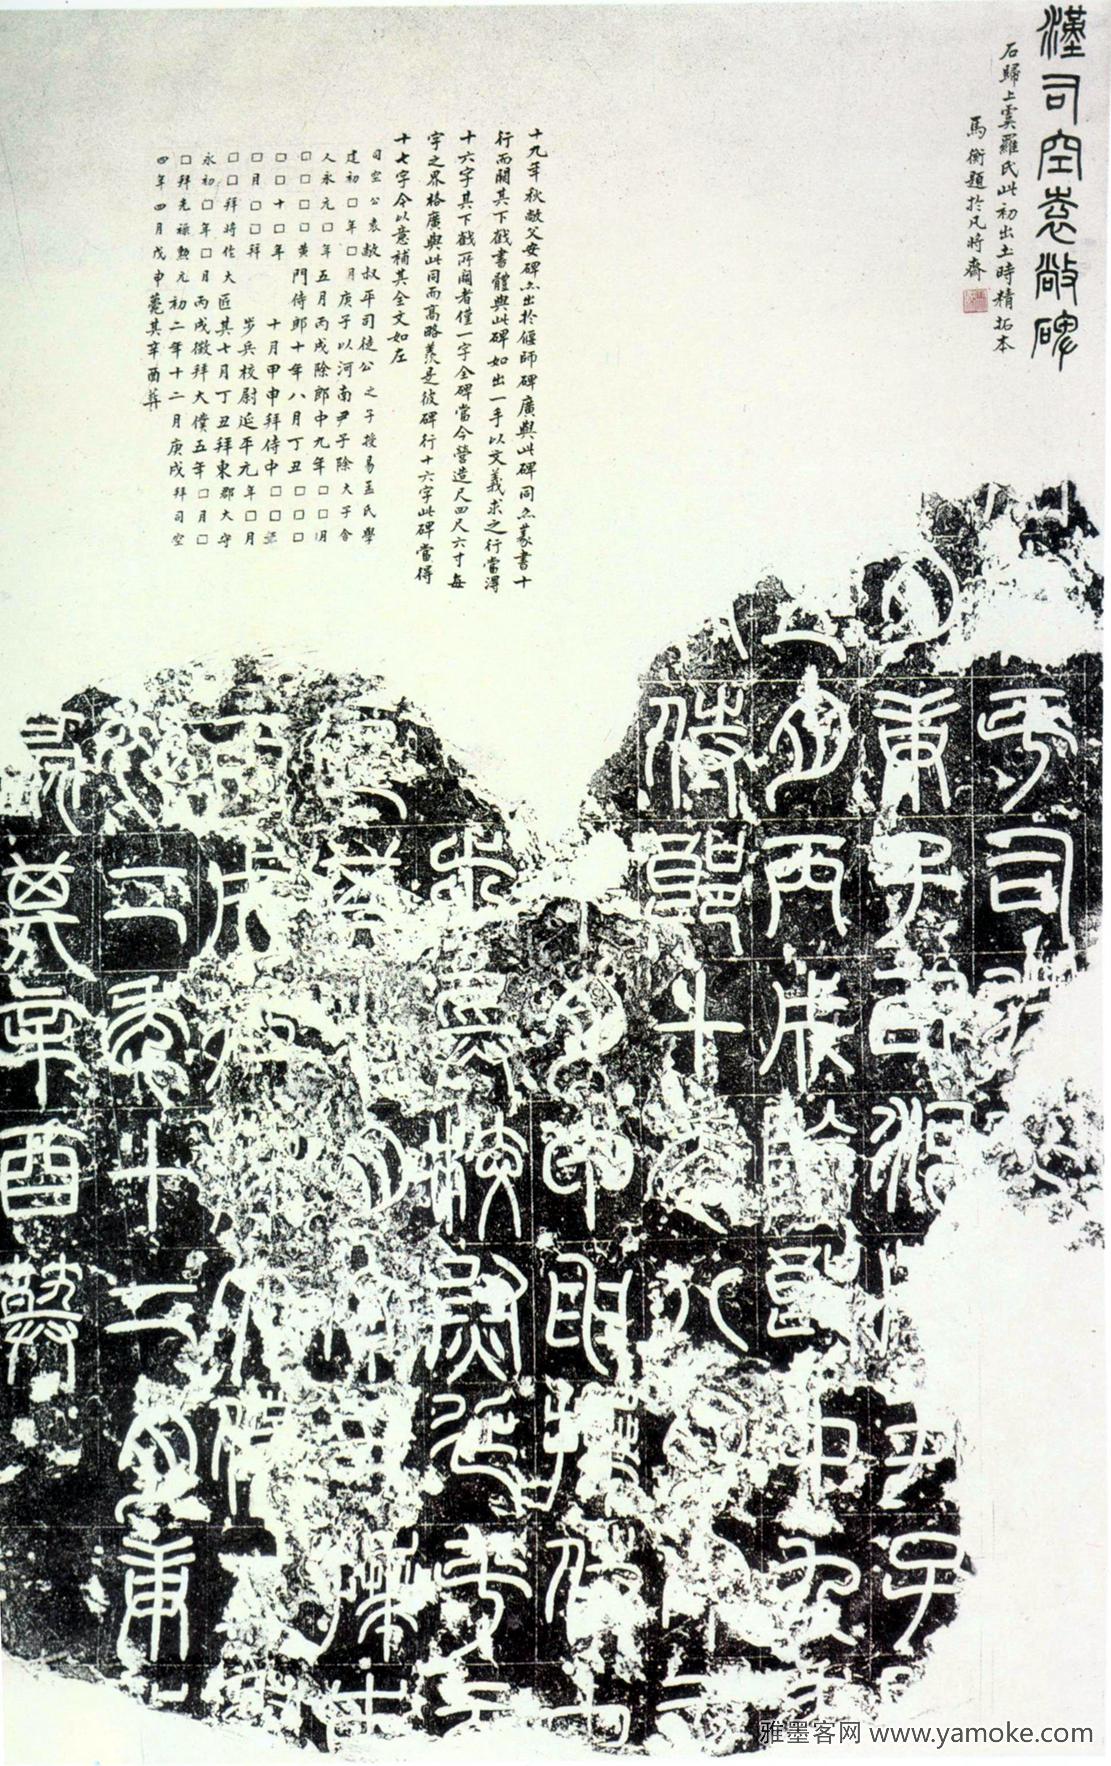 漢司空袁敞碑
石歸上虞羅氏此初出土時精拓本
馬衡題於凡將齋
十九年秋敞父安碑亦出於偃師碑廣與此碑同亦篆書十
行而闕其下截書體與此碑如出一手以文義求之行當得
十六字其下截所闕者僅一字全碑當今營造尺四尺六寸每
字之界格廣與此同而高略羨是彼碑行十六字此碑當得
十七字今以意補其全文如左
司空公袁敞叔平司徒公之子授易孟氏學
建初□年□月庚子以河南尹子除大子舍
人永元□年五月丙戌除郎中九年□□月
□□□□黃門侍郎十年八月丁丑□□□
□□十□年 十月甲申拜侍中□□
□月□□拜 步兵校尉延平元年□月
□□拜將作大匠其七月丁丑拜東郡大守
永初□年□月丙戌徵拜大僕五年□月□
□拜光祿勳元初二年十二月庚戌拜司空
四年四月戊申薨其辛酉葬
平司徒
月庚子以河南尹子
五月丙戌除郎中九
侍郎十年八月丁
十月甲申拜侍中
步兵校尉延平元
其月丁丑拜東
丙戌徵拜大僕五
初二年十二月庚
薨其辛酉葬
雅墨客网 www.yamoke.com